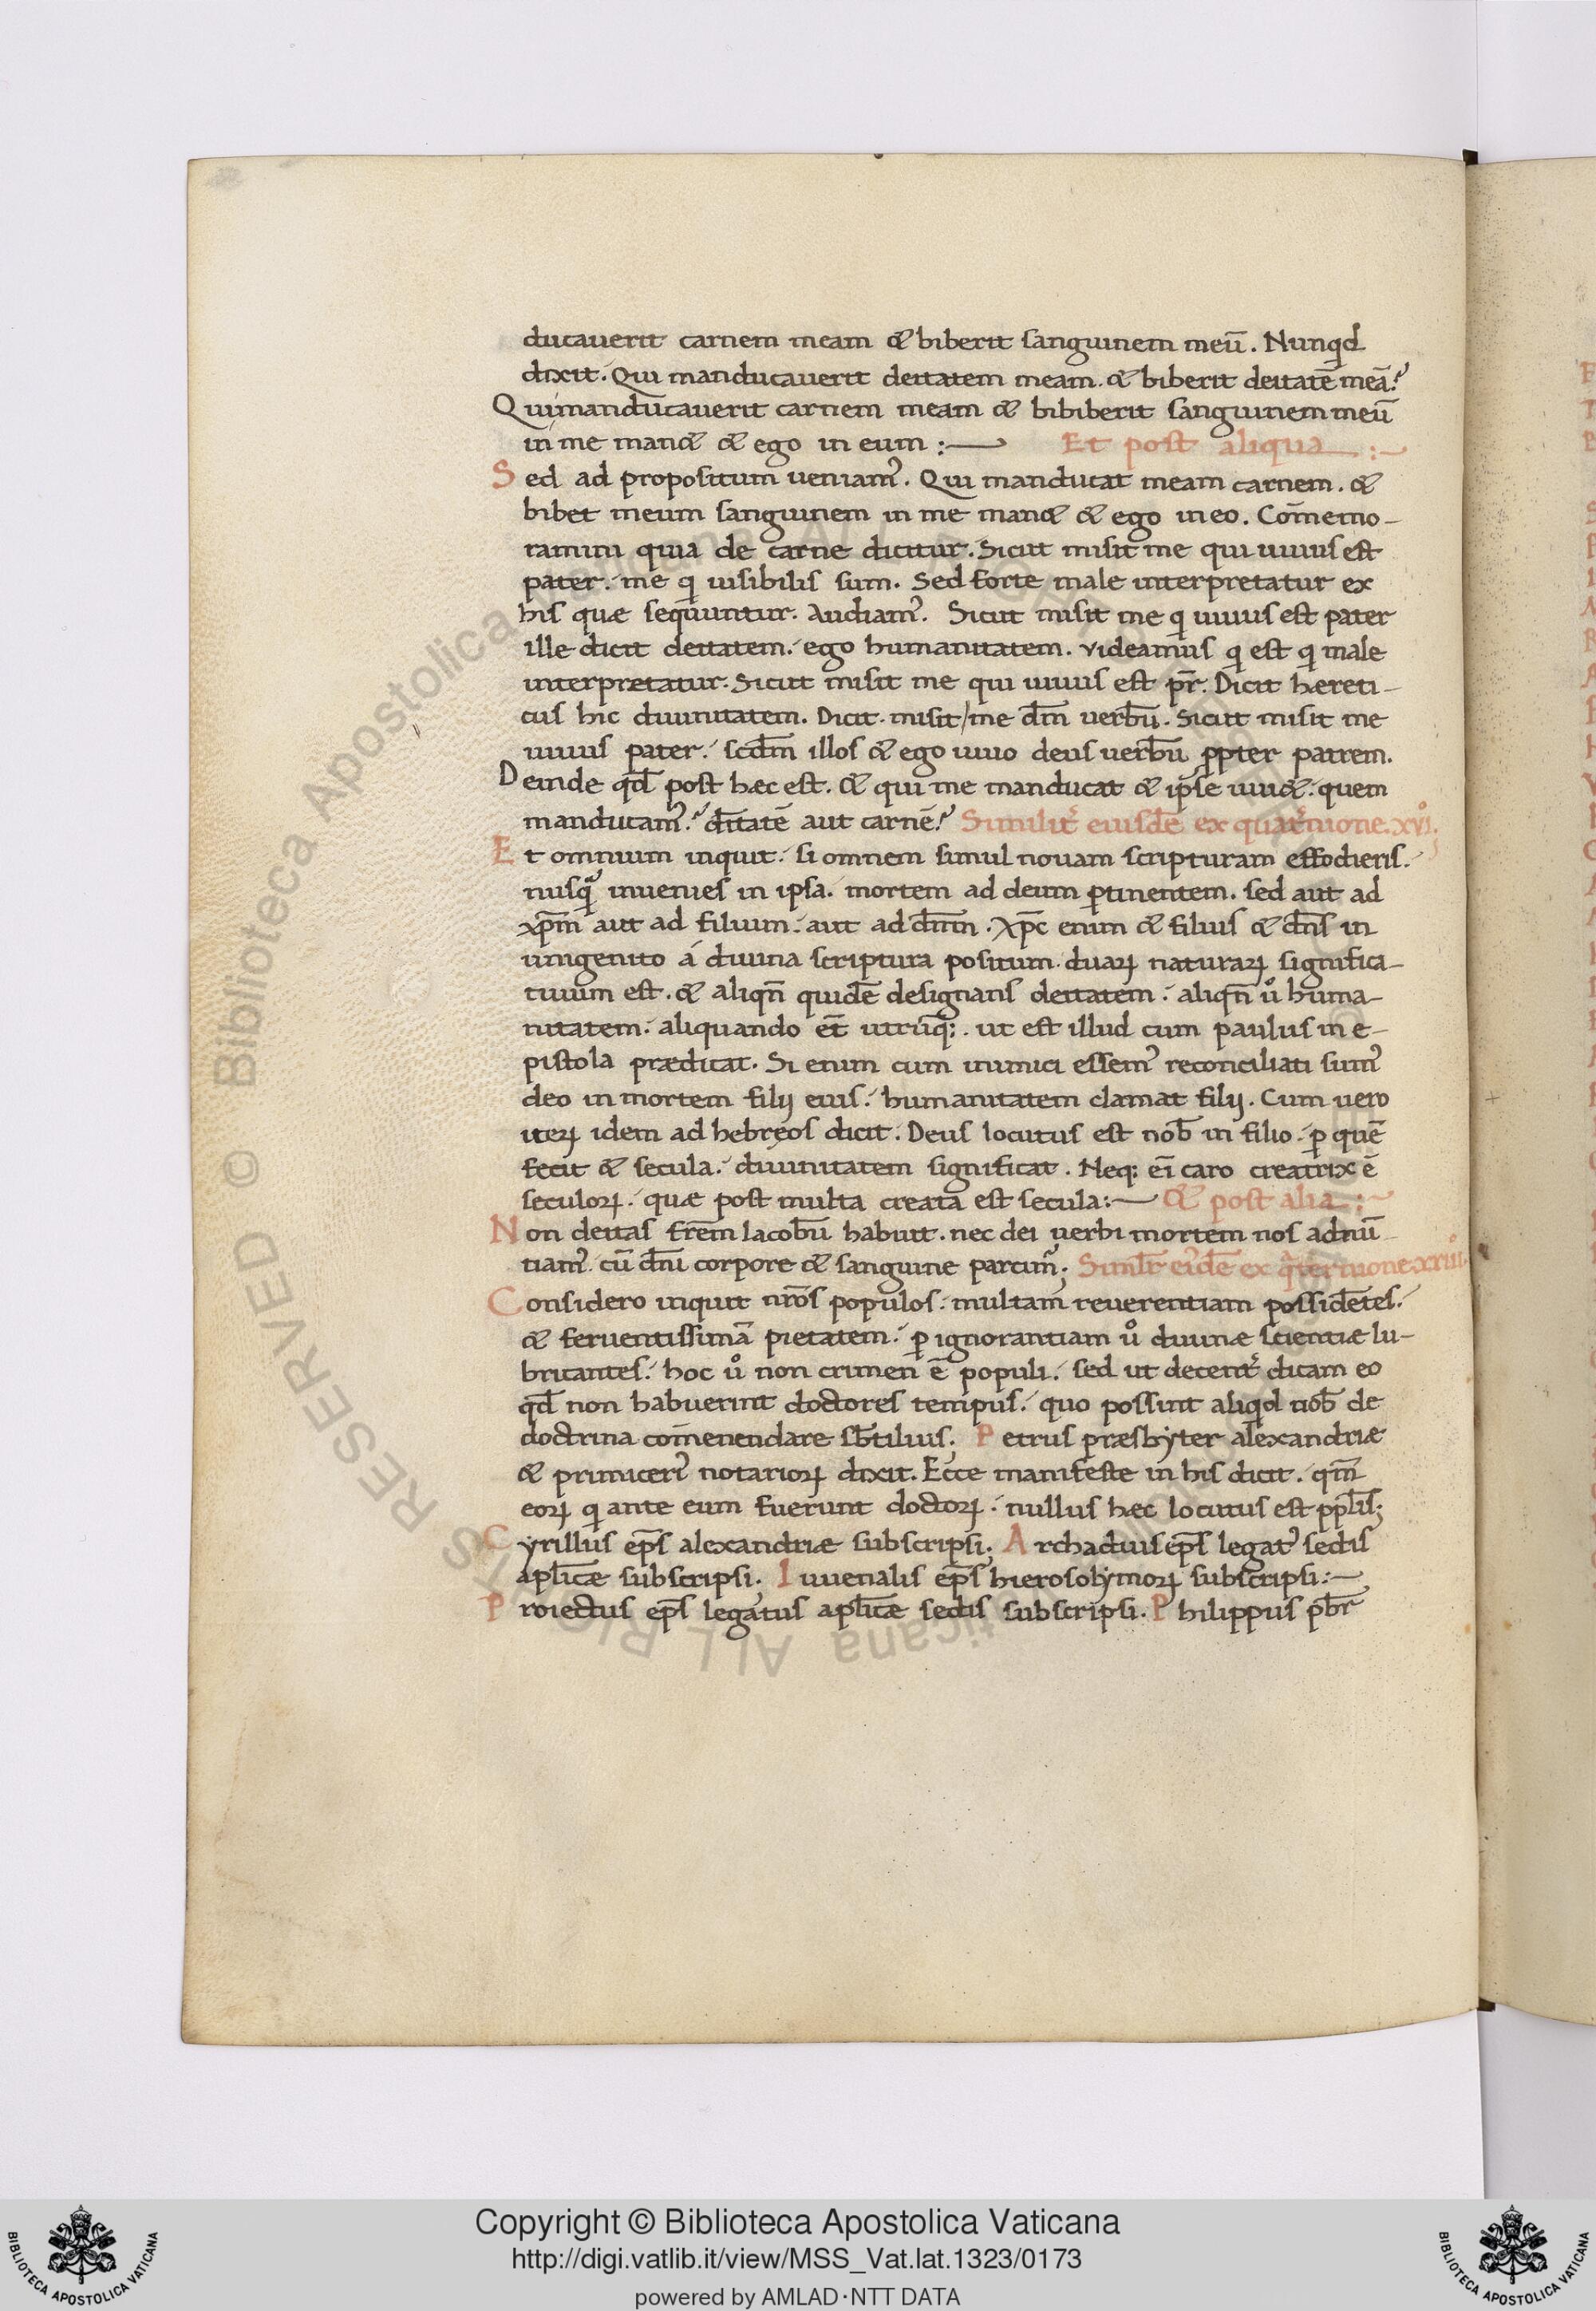 ducauerit carnem meam & biberit sanguinem meū. Nunqd
dixit. Qui manducauerit deitatem meam. & biberit deitatē meā?
Qui manducauerit carnem meam & bibiberit sanguinem meū
in me man& & ego in eum :— Et post aliqua :~
Sed ad propositum ueniam᾿. Qui manducat meam carnem. &
bibet meum sanguinem in me man& & ego in eo. Com̄emo-
ramini quia de carne dicitur. Sicut misit me qui uiuus est
pater. me q uisibilis sum. Sed forte male interpretatur ex
his quæ sequuntur. Audiam᾿. Sicut misit me q uiuus est pater
ille dicit deitatem. ego humanitatem. videamus q est q male
interpretatur. Sicut misit me qui uiuus est pr̄. Dicit hæreti-
cus hic diuinitatem. Dicit. misit/me dm̄ uerbū. Sicut misit me
uiuus pater. scdm̄ illos & ego uiuo deus uerbū ppter patrem.
Deinde qd̄ post hæc est. & qui me manducat & ipse uiu&. quem
manducam᾿? dītatē aut carnē? Similit᾿ eiusdē ex quat᾿nione. xvi.
Et omnium inquit. si omnem simul nouam scripturam effodieris.
nusq̄ inuenies in ipsa. mortem ad deum ptinentem. sed aut ad
xpm̄ aut ad filium. aut ad dm̄m. Xpc̄ enim & filius & dn̄s in
unigenito á diuina scriptura positum. duaꝝ naturaꝝ significa-
tiuum est. & aliqn̄ quidē designans deitatem. aliqn̄ uͦ huma-
nitatem. aliquando et̄ utrūq;. ut est illud cum paulus in e-
pistola prædicat. Si enim cum inimici essem᾿ reconciliati sum᾿
deo in mortem filij eius. humanitatem clamat filij. Cum uero
iteꝝ idem ad hebręos dicit. Deus locutus est nob̄ in filio. p quē
fecit & secula. diuinitatem significat. Neq; ei̅ caro creatrix ē
seculoꝝ. quæ post multa creata est secula:— & post alia :~
Non deitas frēm Iacobū habuit. nec dei uerbi mortem nos adnū
tiam᾿. cū dn̄i corpore & sanguine parcim᾿; Simlr̄ ei᾿dē ex q̄ternione xxiii.
Considero inquit nrōs populos. multam reuerentiam possidētes.
& feruentissimā pietatem. p ignorantiam uͦ diuinæ scientiæ lu-
bricantes. hoc uͦ non crimen ē populi. sed ut decent᾿ dicam eo
qd̄ non habuerint doctores tempus. quo possint aliqd nob̄ de
doctrina com̄enendare sb̄tilius; Petrus præsbyter alexandriæ
& primiceri᾿ notarioꝝ dixit. Ecce manifeste in his dicit. qm̄
eoꝝ q ante eum fuerunt doctoꝝ. nullus hæc locutus est pplis̄;
Cyrillus ep̄s alexandriæ subscripsi; Archadius ep̄s legat᾿ sedis
aplicǣ subscripsi; Iuuenalis ep̄s hierosolymoꝝ subscripsi:—
Proiectus ep̄s legatus aplicǣ sedis subscripsi. Philippus pbr̄
Copyright © Biblioteca Apostolica Vaticana
http://digi.vatlib.it/view/MSS_Vat.lat.1323/0173
powered by AMLAD·NTT DATA
BIBLIOTECA APOSTOLICA VATICANA
BIBLIOTECA APOSTOLICA VATICANA